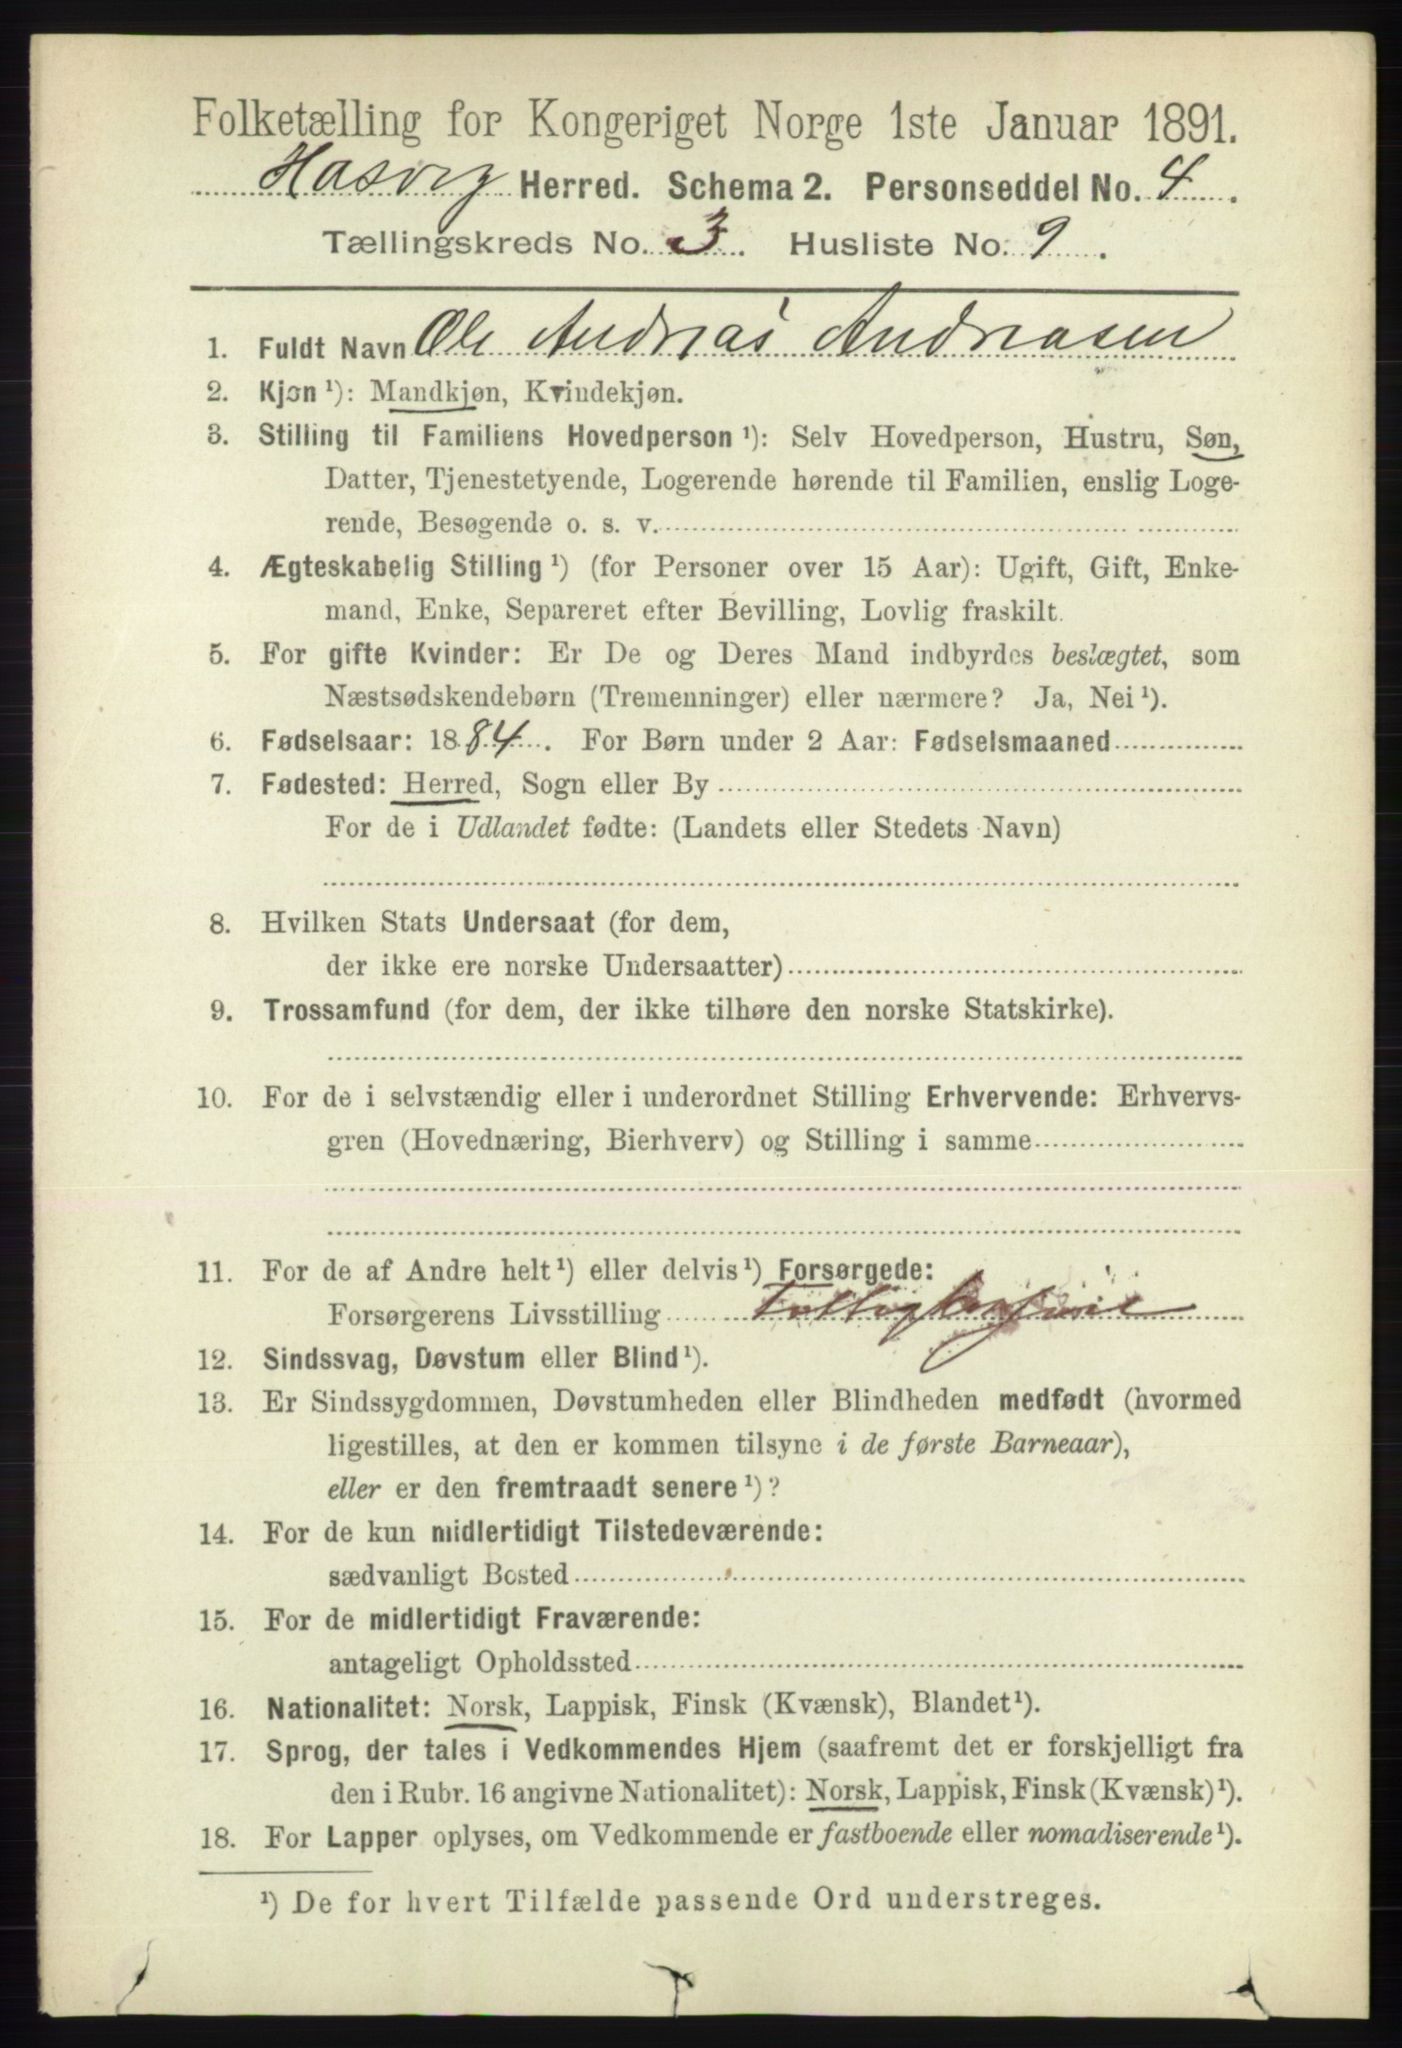 Folketælling for Kongeriget Norge 1ste Januar 1891.
Hasvig Herred. Schema 2. Personseddel No. 4.
Tællingskreds No. 3. Husliste No. 9.
1. Fuldt Navn Ole Andreas Andreasen
2. Kjøn ¹): Mandkjøn, Kvindekjøn.
3. Stilling til Familiens Hovedperson ¹): Selv Hovedperson, Hustru, Søn,
Datter, Tjenestetyende, Logerende hørende til Familien, enslig Loge-
rende, Besøgende o. s. v.
4. Ægteskabelig Stilling ¹) (for Personer over 15 Aar): Ugift, Gift, Enke-
mand, Enke, Separeret efter Bevilling, Lovlig fraskilt.
5. For gifte Kvinder: Er De og Deres Mand indbyrdes beslægtet, som
Næstsødskendebørn (Tremenninger) eller nærmere? Ja, Nei ¹).
6. Fødselsaar: 1884. For Børn under 2 Aar: Fødselsmaaned
7. Fødested: Herred, Sogn eller By
For de i Udlandet fødte: (Landets eller Stedets Navn)
8. Hvilken Stats Undersaat (for dem,
der ikke ere norske Undersaatter)
9. Trossamfund (for dem, der ikke tilhøre den norske Statskirke).
10. For de i selvstændig eller i underordnet Stilling Erhvervende: Erhvervs-
gren (Hovednæring, Bierhverv) og Stilling i samme
11. For de af Andre helt ¹) eller delvis ¹) Forsørgede:
Forsørgerens Livsstilling
12. Sindssvag, Døvstum eller Blind ¹).
13. Er Sindssygdommen, Døvstumheden eller Blindheden medfødt (hvormed
ligestilles, at den er kommen tilsyne i de første Barneaar),
eller er den fremtraadt senere ¹)?
14. For de kun midlertidigt Tilstedeværende:
sædvanligt Bosted
15. For de midlertidigt Fraværende:
antageligt Opholdssted
16. Nationalitet: Norsk, Lappisk, Finsk (Kvænsk), Blandet ¹).
17. Sprog, der tales i Vedkommendes Hjem (saafremt det er forskjelligt fra
den i Rubr. 16 angivne Nationalitet): Norsk, Lappisk, Finsk (Kvænsk) ¹).
18. For Lapper oplyses, om Vedkommende er fastboende eller nomadiserende ¹).
¹) De for hvert Tilfælde passende Ord understreges.